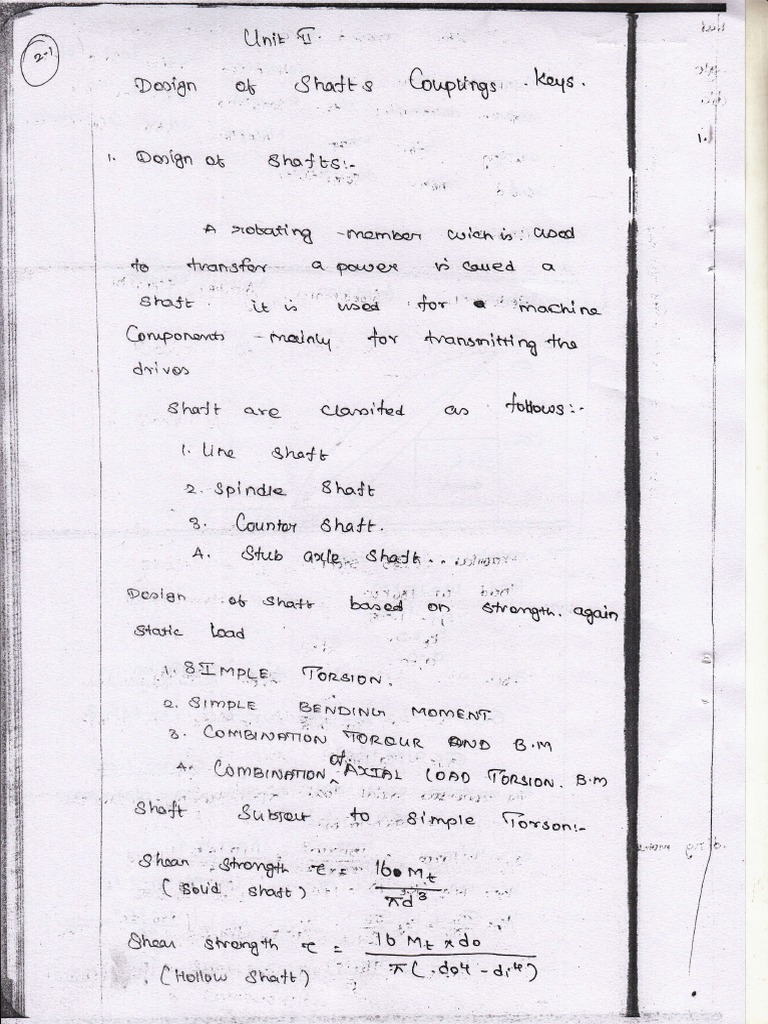 2-1
Unit II.
Design of Shafts Couplings Keys.
1. Design of Shafts:-
A rotating member wich is used
to transfer a power is called a
Shaft. it is used for a machine
Components mainly for transmitting the
drives
Shaft are classified as follows:-
1. Line Shaft
2. Spindle Shaft
3. Counter Shaft.
4. Stub axle Shaft...
Design of Shaft based on strength. again
static load
1. SIMPLE TORSION.
2. SIMPLE BENDING MOMENT
3. COMBINATION TORQUR AND B.M
4. COMBINATION of AXIAL LOAD TORSION. B.M
Shaft Subject to Simple Torson:-
Shear strength τ = 16 Mt / πd³
(Solid shaft)
Shear strength τ = 16 Mt x do / π(do⁴ - di⁴)
(Hollow Shaft)
1.